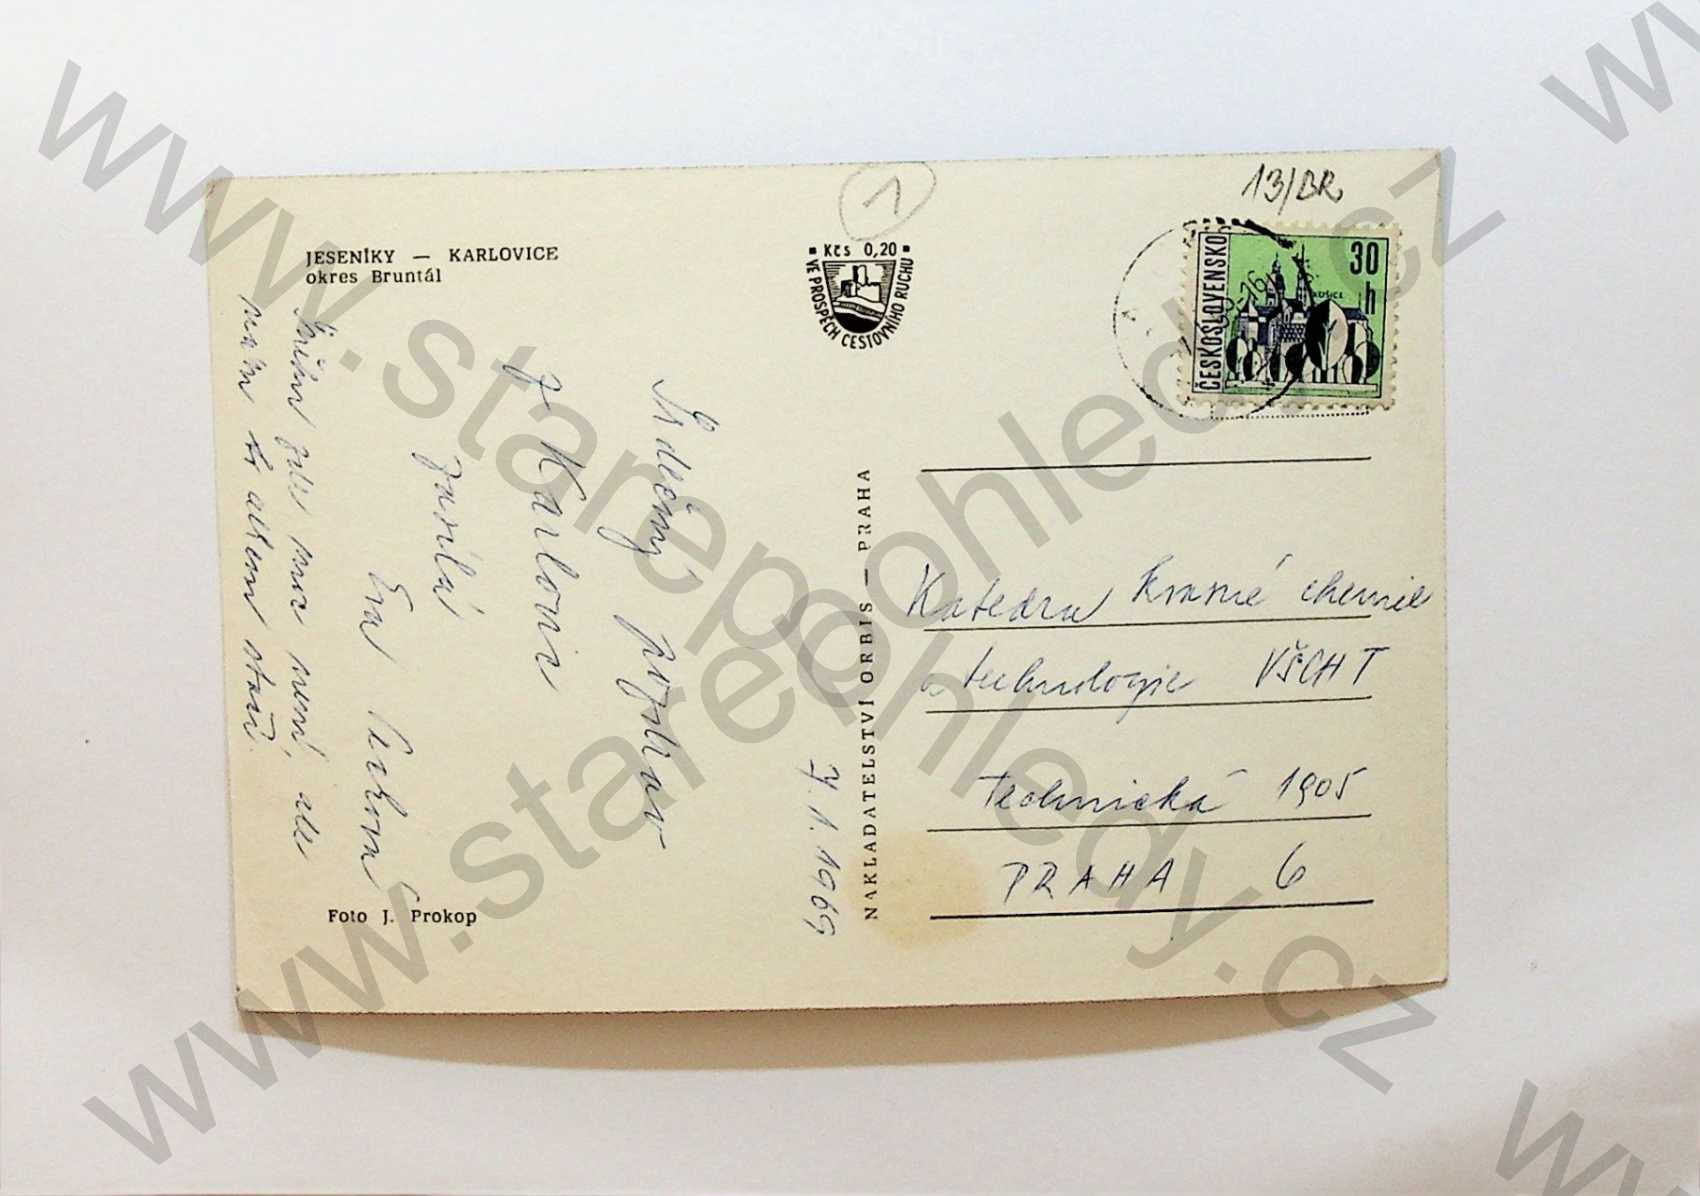 13/BR
1
JESENÍKY — KARLOVICE
okres Bruntál
Kčs 0,20
VE PROSPĚCH CESTOVNÍHO RUCHU
ČESKOSLOVENSKO
30
h
KOŠICE
7. 1. 1969
Srdečný pozdrav
z Karlovic
zasílá
Eva
Sněhu zde moc není, ale
Foto J. Prokop
NAKLADATELSTVÍ ORBIS — PRAHA
Katedra kvasné chemie
a technologie VŠCHT
Technická 1905
PRAHA 6
www.starepohledy.cz
www.starepohledy.cz